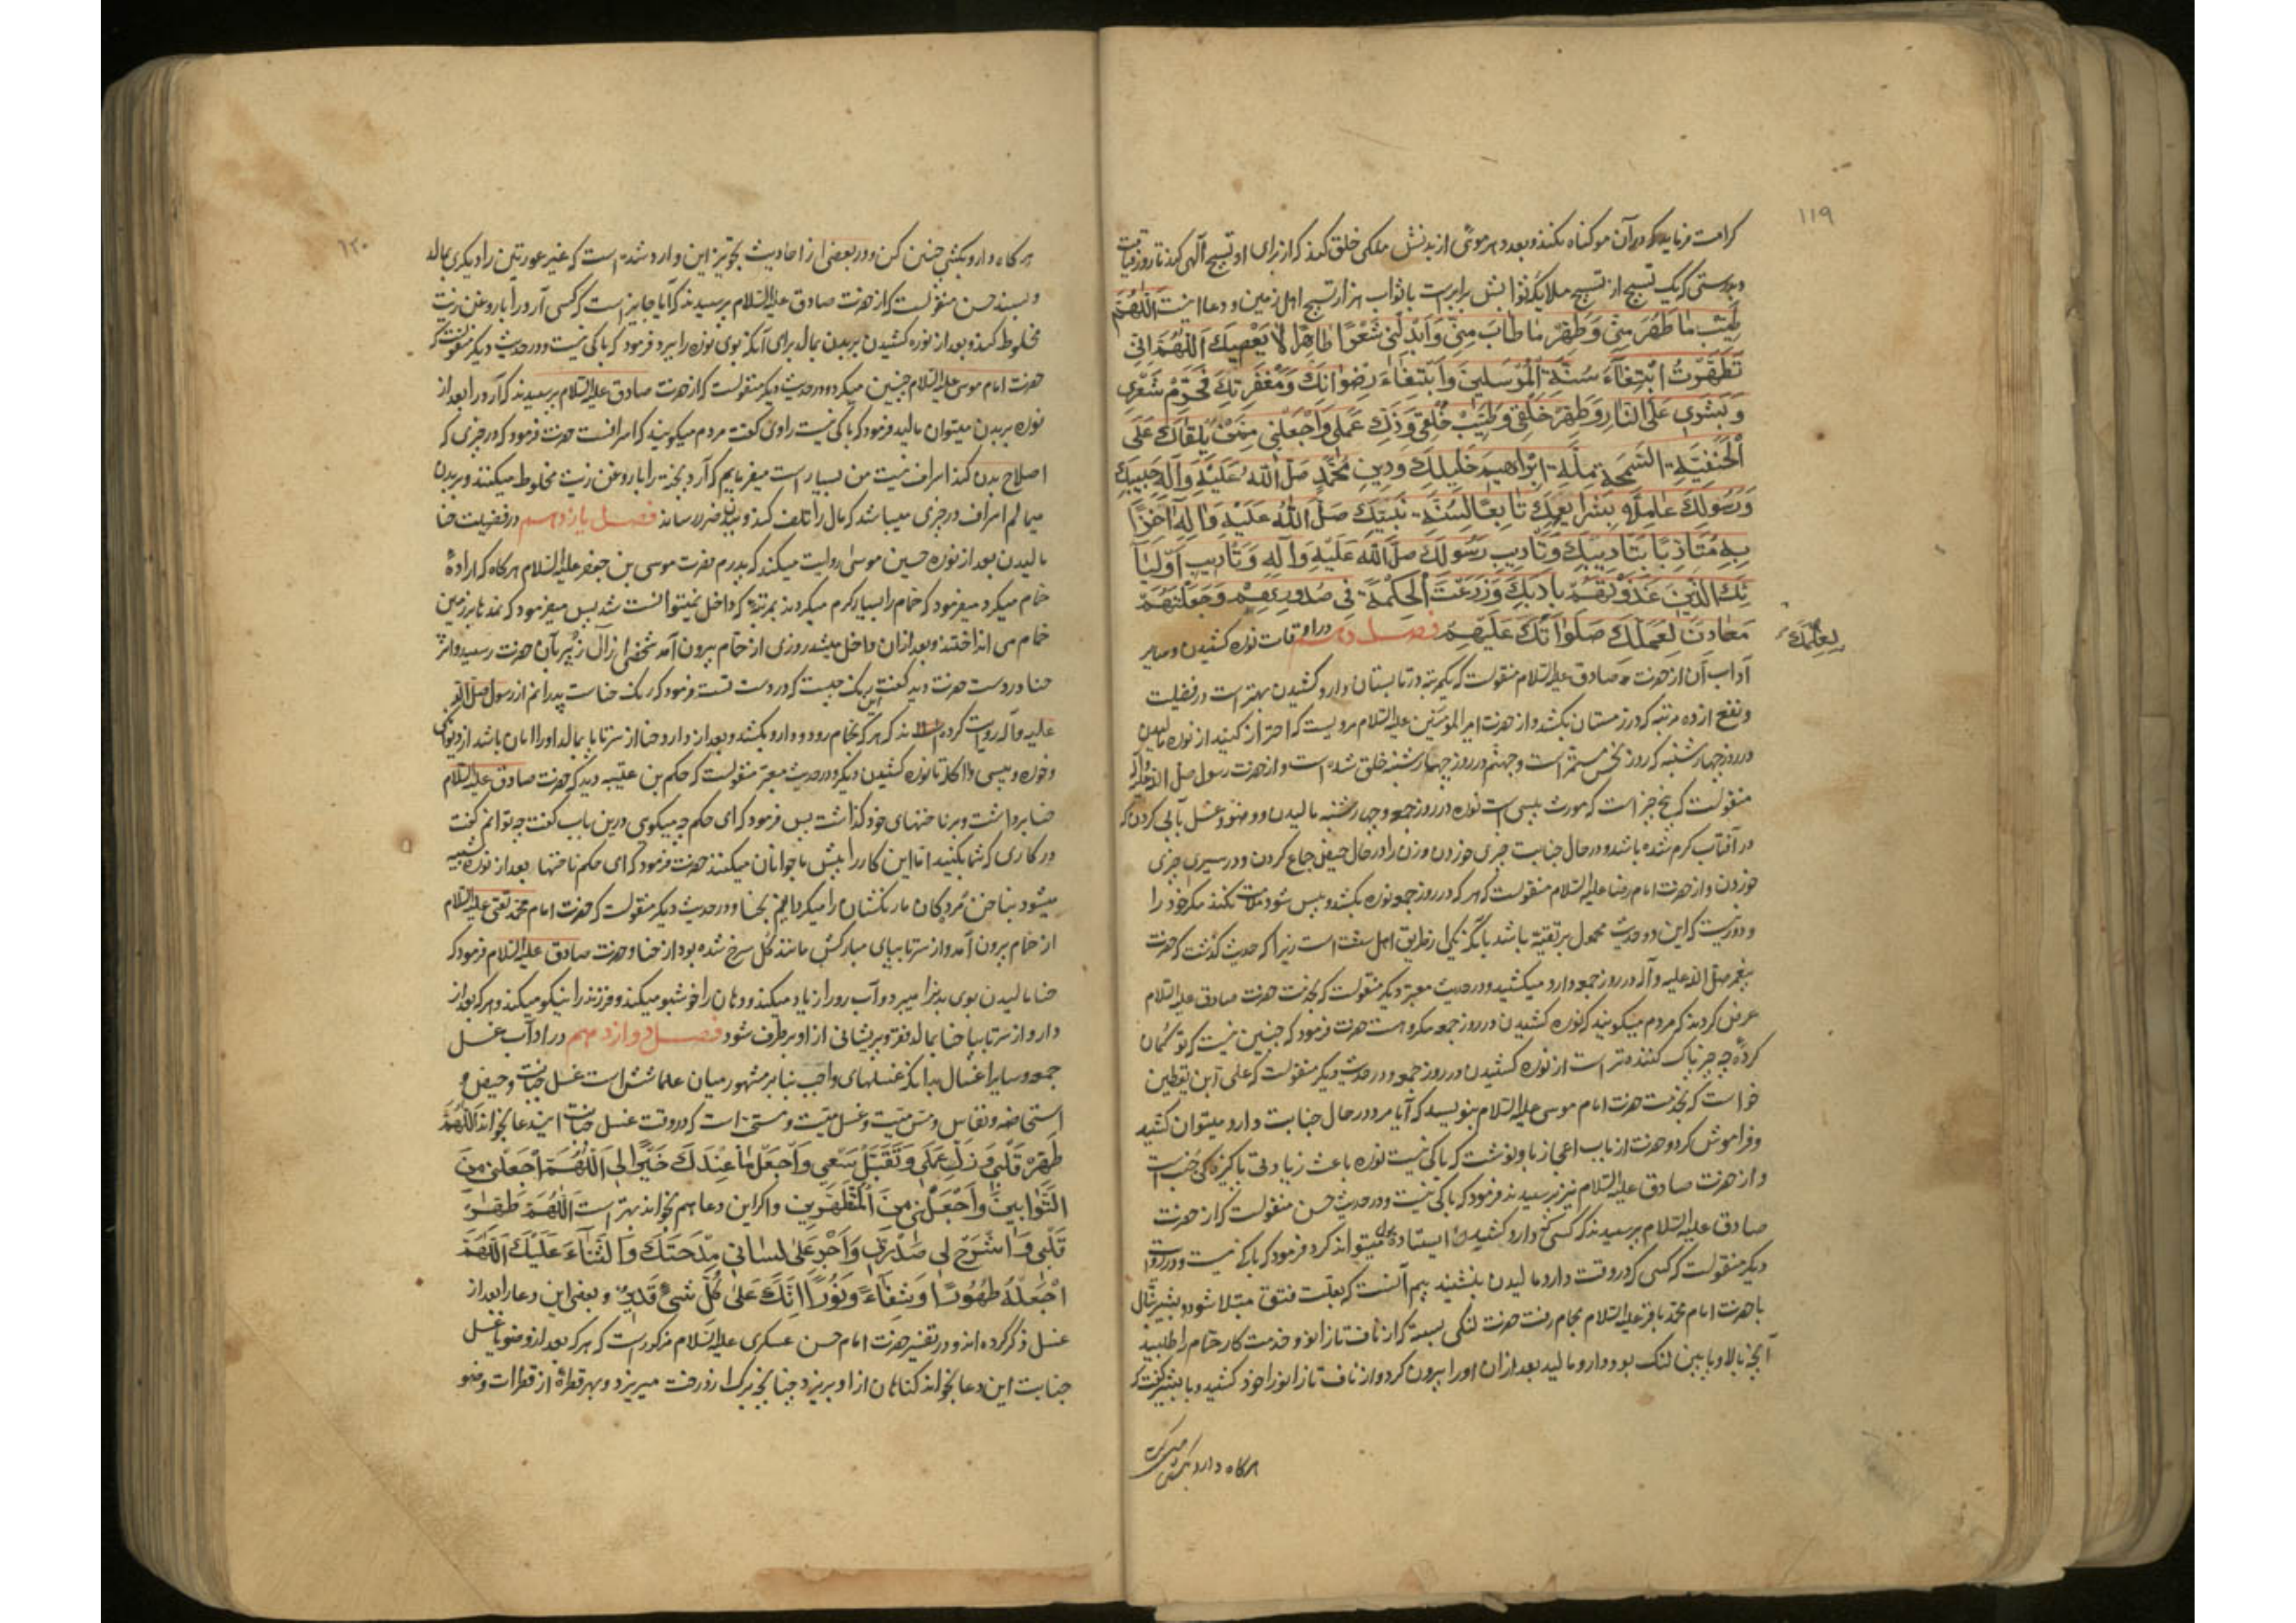 ۱۱۹
کرامت فرماید که در آن مو گناه نکنند و بعدد هر موئی از بدنش ملکی خلق کند که از برای او تسبیح الهی کند تا روز قیامت
و بدرستی که یک تسبیح از تسبیح ملایکه ثوابش برابر است با ثواب هزار تسبیح اهل زمین و دعا اینست اَللّهُمَّ
طَیِّبْ ما طَهُرَ مِنّی وَ طَهِّرْ ما طابَ مِنّی وَ اَبْدِلْنی شَعْرًا طاهِرًا لا یَعْصیكَ اَللّهُمَّ اِنّی
تَطَهَّرْتُ ابْتِغآءَ سُنَّةِ الْمُرْسَلینَ وَ ابْتِغاءَ رِضْوانِكَ وَ مَغْفِرَتِكَ فَحَرِّمْ شَعْری
وَ بَشَری عَلَی النّارِ وَ طَهِّرْ خَلْقی وَ طَیِّبْ خُلْقی وَ زَكِّ عَمَلی وَ اجْعَلْنی مِمَّنْ یَلْقاكَ عَلَی
الْحَنیفِیَّةِ السَّمْحَةِ مِلَّةِ اِبْراهیمَ خَلیلِكَ وَ دینِ مُحَمَّدٍ صَلَّی اللّهُ عَلَیْهِ وَ آلِهِ حَبیبِكَ
وَ رَسُولِكَ عامِلًا بِشَرایِعِكَ تابِعًا لِسُنَّةِ نَبِیِّكَ صَلَّی اللّهُ عَلَیْهِ وَ آلِهِ آخِذًا
بِهِ مُتَاَدِّبًا بِتَاْدیبِكَ وَ تَاْدیبِ رَسُولِكَ صَلَّی اللّهُ عَلَیْهِ وَ آلِهِ وَ تَاْدیبِ اَوْلِیآ
ئِكَ الَّذینَ غَذَوْتَهُمْ بِاَدَبِكَ وَ زَرَعْتَ الْحِکْمَةَ فی صُدُورِهِمْ وَ جَعَلْتَهُمْ
مَعادِنَ لِعَمَلِكَ صَلَواتُكَ عَلَیْهِمْ فصل دهم در اوقات نوره کشیدن و سایر
لِعِلْمِكَ
آداب آن از حضرت صادق علیه السلام منقولست که یکمرتبه در تابستان دارو کشیدن بهتر است در فضیلت
و نفع از ده مرتبه که در زمستان بکشد و از حضرت امیر المؤمنین علیه السلام مرویست که احتراز کنید از نوره مالیدن
در روز چهارشنبه که روز نحس مستمر است و جهنم در روز چهارشنبه خلق شده است و از حضرت رسول صلی الله علیه و آله
منقولست که پنج چیز است که مورث پیسی است نوره در روز جمعه و چهارشنبه مالیدن و وضو و غسل بآبی کردن که
در آفتاب گرم شده باشد و در حال جنابت چیزی خوردن و زن را در حال حیض جماع کردن و در سیری چیزی
خوردن و از حضرت امام رضا علیه السلام منقولست که هر که در روز جمعه نوره بکشد و پیس شود ملامت نکند مگر خود را
و دور نیست که این دو حدیث محمول بر تقیه باشد یا آنکه بطریق اهل سنت است زیرا که حدیث گذشت که حضرت
پیغمبر صلی الله علیه و آله در روز جمعه دارو میکشید و در حدیث معتبر دیگر منقولست که بخدمت حضرت صادق علیه السلام
عرض کردند که مردم میگویند که نوره کشیدن در روز جمعه مکروه است حضرت فرمود که چنین نیست که تو گمان
کردهٔ چه چیز پاک کننده‌تر است از نوره کشیدن در روز جمعه و در حدیث دیگر منقولست که علی ابن یقطین
خواست که بخدمت حضرت امام موسی علیه السلام بنویسد که آیا مرد در حال جنابت دارو میتوان کشید
و فراموش کرد و حضرت از باب اعجاز باو نوشت که باکی نیست نوره باعث زیادتی پاکیزگی جنب است
و از حضرت صادق علیه السلام نیز پرسیدند فرمود که باکی نیست و در حدیث حسن منقولست که از حضرت
صادق علیه السلام پرسیدند که کسی دارو کشیدن ایستاده بول میتواند کرد فرمود که باکی نیست و در روایت
دیگر منقولست که کسی که در وقت دارو مالیدن بنشیند بیم آنست که بعلت فتق مبتلا شود و بشیر نبال
با حضرت امام محمد باقر علیه السلام بحمام رفت حضرت لنگی بسته که از ناف تا زانو و خدمت کار حمام را طلبید
آنچه بالا و پایین لنگ بود دارو مالید بعد از آن او را بیرون کرد و از ناف تا زانو را خود کشید و با بشیر گفت که
هرگاه دارو بکشی چنین کن
۱۲۰
هرگاه دارو بکشی چنین کن و در بعضی از احادیث تجویز این وارد شده است که غیر عورتین را دیگری بمالد
و بسند حسن منقولست که از حضرت صادق علیه السلام پرسیدند که آیا جایز است که کسی آرد را با روغن زیت
مخلوط کند و بعد از نوره کشیدن بر بدن بمالد برای آنکه بوی نوره را ببرد فرمود که باکی نیست و در حدیث دیگر منقولست که
حضرت امام موسی علیه السلام چنین میکرد و در حدیث دیگر منقولست که از حضرت صادق علیه السلام پرسیدند که آرد را بعد از
نوره بر بدن میتوان مالید فرمود که باکی نیست راوی گفت مردم میگویند که اسرافست حضرت فرمود که در چیزی که
اصلاح بدن کند اسراف نیست من بسیار است میفرمایم که آرد بیخته را با روغن زیت مخلوط میکنند و بر بدن
میمالم اسراف در چیزی میباشد که مال را تلف کند و ببدن ضرر رساند فصل یازدهم در فضیلت حنا
مالیدن بعد از نوره حسین موسی روایت میکند که پدرم حضرت موسی بن جعفر علیه السلام هرگاه که ارادهٔ
حمام میکرد میفرمود که حمام را بسیار گرم میکردند بمرتبهٔ که داخل نمیتوانست شد پس میفرمود که نمدها بر زمین
حمام می انداختند و بعد از آن داخل میشد روزی از حمام بیرون آمد شخصی از آل زبیر بآن حضرت رسید و اثر
حنا در دست حضرت دید گفت این رنگ چیست که در دست تست فرمود که رنگ حناست پدرانم از رسول صلی الله
علیه و آله روایت کرده اند که هر که بحمام رود و دارو بکشد و بعد از دارو حنا از سر تا پا بمالد او را امان باشد از دیوانگی
و خوره و پیسی و آکله تا نوره کشیدن دیگر و در حدیث معتبر منقولست که حکم بن عتیبه دید که حضرت صادق علیه السلام
حنا برداشت و بر ناخنهای خود گذاشت پس فرمود که ای حکم چه میگوی درین باب گفت چه توانم گفت
در کاری که شما بکنید اما این کار را پیش ما جوانان میکنند حضرت فرمود که ای حکم ناخنها بعد از نوره شبیه
میشود بناخن مردگان ما رنگشان را میگردانیم بحنا و در حدیث دیگر منقولست که حضرت امام محمد تقی علیه السلام
از حمام بیرون آمد و از سر تا بپای مبارکش مانند گل سرخ شده بود از حنا و حضرت صادق علیه السلام فرمود که
حنا مالیدن بوی بد را میبرد و آب رو را زیاد میکند و دهان را خوشبو میکند و فرزند را نیکو میکند و هر که بعد از
دارو از سر تا بپا حنا بمالد فقر و پریشانی از او برطرف شود فصل دوازدهم در اداب غسل
جمعه و سایر اغسال بدانکه غسلهای واجب بنا بر مشهور میان علما شش است غسل جنابت و حیض و
استحاضه و نفاس و مس میت و غسل میت و مستحب است که در وقت غسل جنابت ایندعا بخواند اَللّهُمَّ
طَهِّرْ قَلْبی وَ زَكِّ عَمَلی وَ تَقَبَّلْ سَعْیی وَ اجْعَلْ ما عِنْدَكَ خَیْرًا لی اَللّهُمَّ اجْعَلْنی مِنَ
التَّوّابینَ وَ اجْعَلْنی مِنَ الْمُتَطَهِّرین و اگر این دعا هم بخواند بهتر است اَللّهُمَّ طَهِّرْ
قَلْبی وَ اشْرَحْ لی صَدْری وَ اَجْرِ عَلی لِسانی مِدْحَتَكَ وَ الثَّنآءَ عَلَیْكَ اَللّهُمَّ
اجْعَلْهُ طَهُورًا وَ شِفآءً وَ نُورًا اِنَّكَ عَلی كُلِّ شَیْءٍ قَدیرٌ و بعضی این دعا را بعد از
غسل ذکر کرده اند و در تفسیر حضرت امام حسن عسکری علیه السلام مذکور است که هر که بعد از وضو یا غسل
جنابت این دعا بخواند گناهان از او بریزد چنانچه برگ از درخت میریزد و بهر قطرهٔ از قطرات وضو